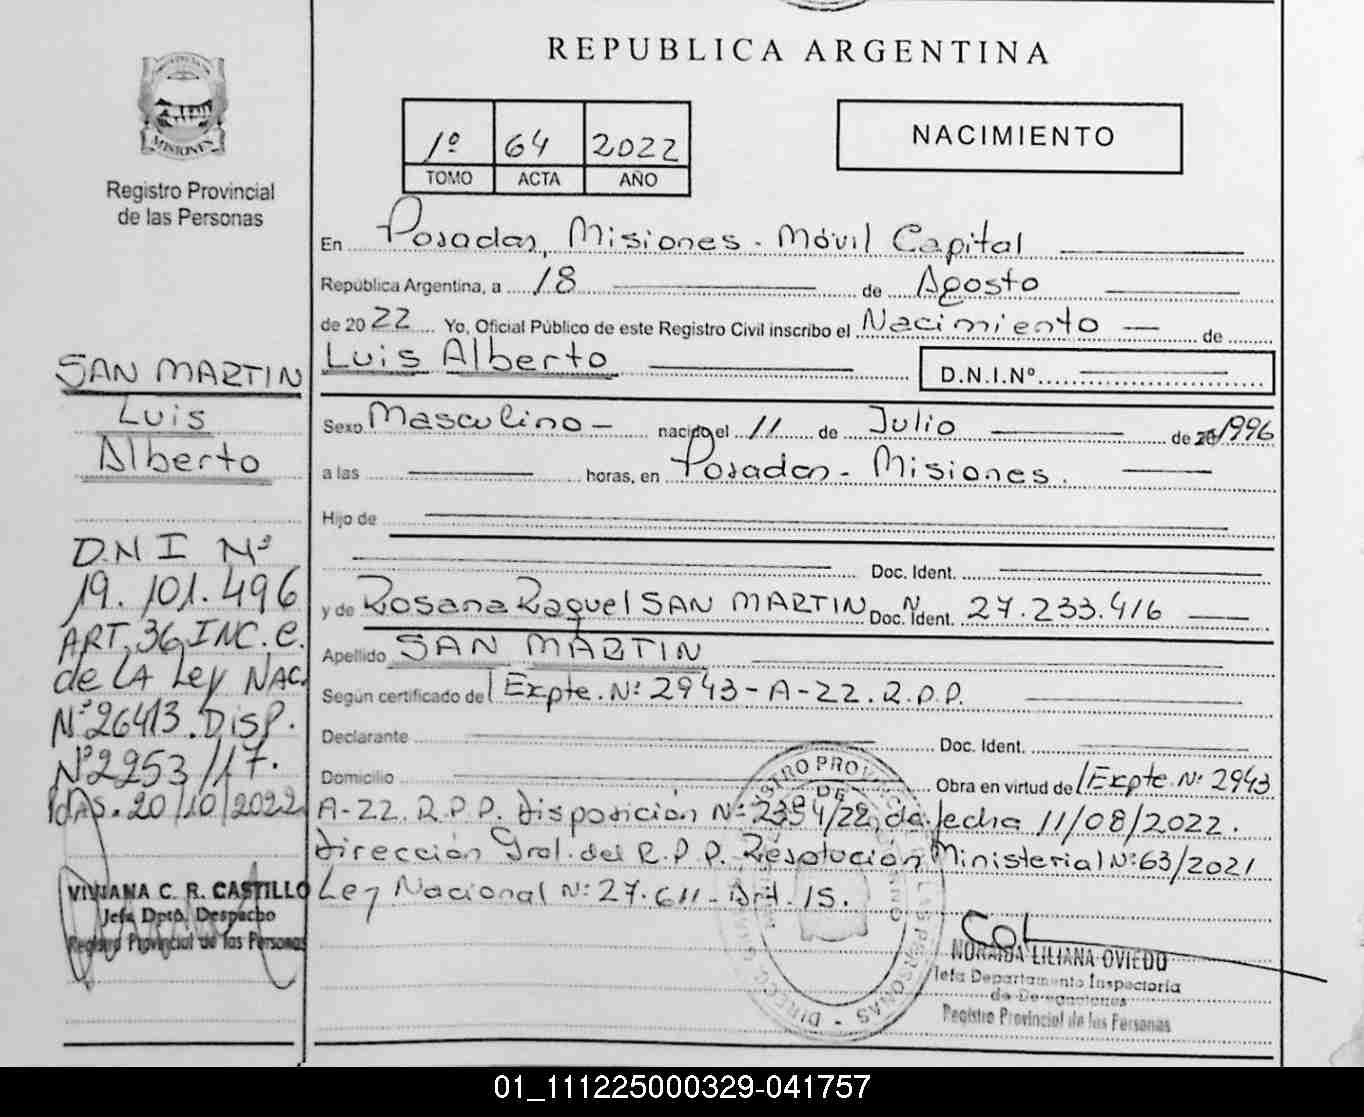 REPUBLICA ARGENTINA
MISIONES
Registro Provincial
de las Personas
1º 64 2022
TOMO ACTA AÑO
NACIMIENTO
En Posadas, Misiones - Móvil Capital
República Argentina, a 18 de Agosto
de 2022 Yo, Oficial Público de este Registro Civil inscribo el Nacimiento de
Luis Alberto D.N.I.Nº
Sexo Masculino nacido el 11 de Julio de 1996
a las horas, en Posadas - Misiones.
Hijo de
Doc. Ident.
y de Rosana Raquel SAN MARTIN Doc. Ident. Nº 27.233.416
Apellido SAN MARTIN
Según certificado de Expte. Nº 2943-A-22. R.P.P.
Declarante Doc. Ident.
Domicilio Obra en virtud de Expte. Nº 2943
A-22. R.P.P. Disposición Nº 2394/22, de fecha 11/08/2022.
Dirección Gral. del R.P.P. Resolución Ministerial Nº 63/2021
Ley Nacional Nº 27.611 - Art. 15.
SAN MARTIN
Luis
Alberto
D.N.I Nº
19.101.496
ART. 36 INC. C.
de LA Ley NAC.
Nº 26413. Disp.
Nº 2953/17.
Pdas. 20/10/2022
VIVIANA C. R. CASTILLO
Jefa Dpto. Despacho
Registro Provincial de las Personas
NORAIDA LILIANA OVIEDO
Jefa Departamento Inspectoria
de Delegaciones
Registro Provincial de las Personas
01_111225000329-041757